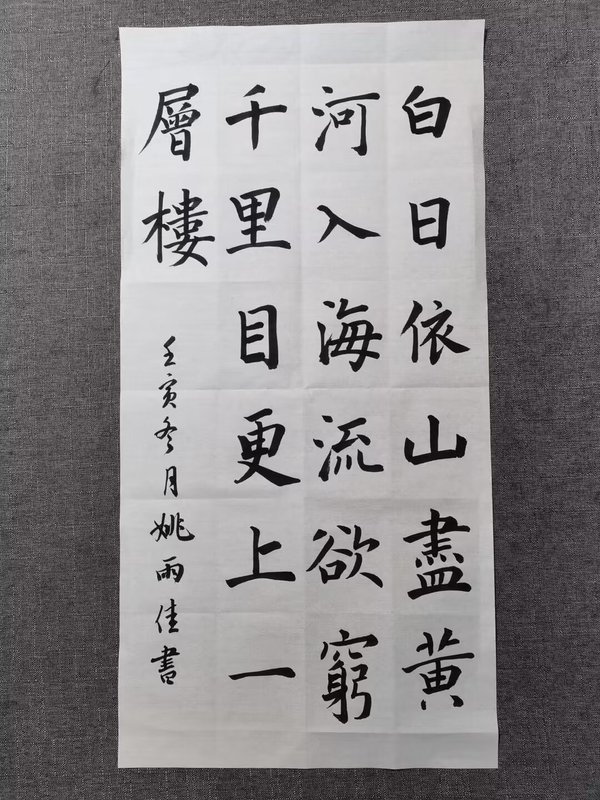 白日依山盡黄
河入海流欲窮
千里目更上一
層樓
壬寅冬月姚雨佳書